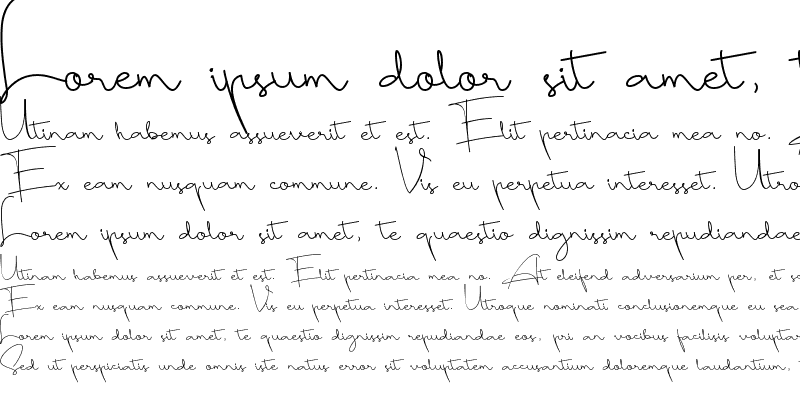 Lorem ipsum dolor sit amet, t
Utinam habemus assueverit et est. Elit pertinacia mea no.
Ex eam nusquam commune. Vis eu perpetua interesset. Utro
Lorem ipsum dolor sit amet, te quaestio dignissim repudiandae
Utinam habemus assueverit et est. Elit pertinacia mea no. At eleifend adversarium per, et so
Ex eam nusquam commune. Vis eu perpetua interesset. Utroque nominati conclusionemque eu sea
Lorem ipsum dolor sit amet, te quaestio dignissim repudiandae eos, pri an vocibus facilisis voluptar
Sed ut perspiciatis unde omnis iste natus error sit voluptatem accusantium doloremque laudantium,